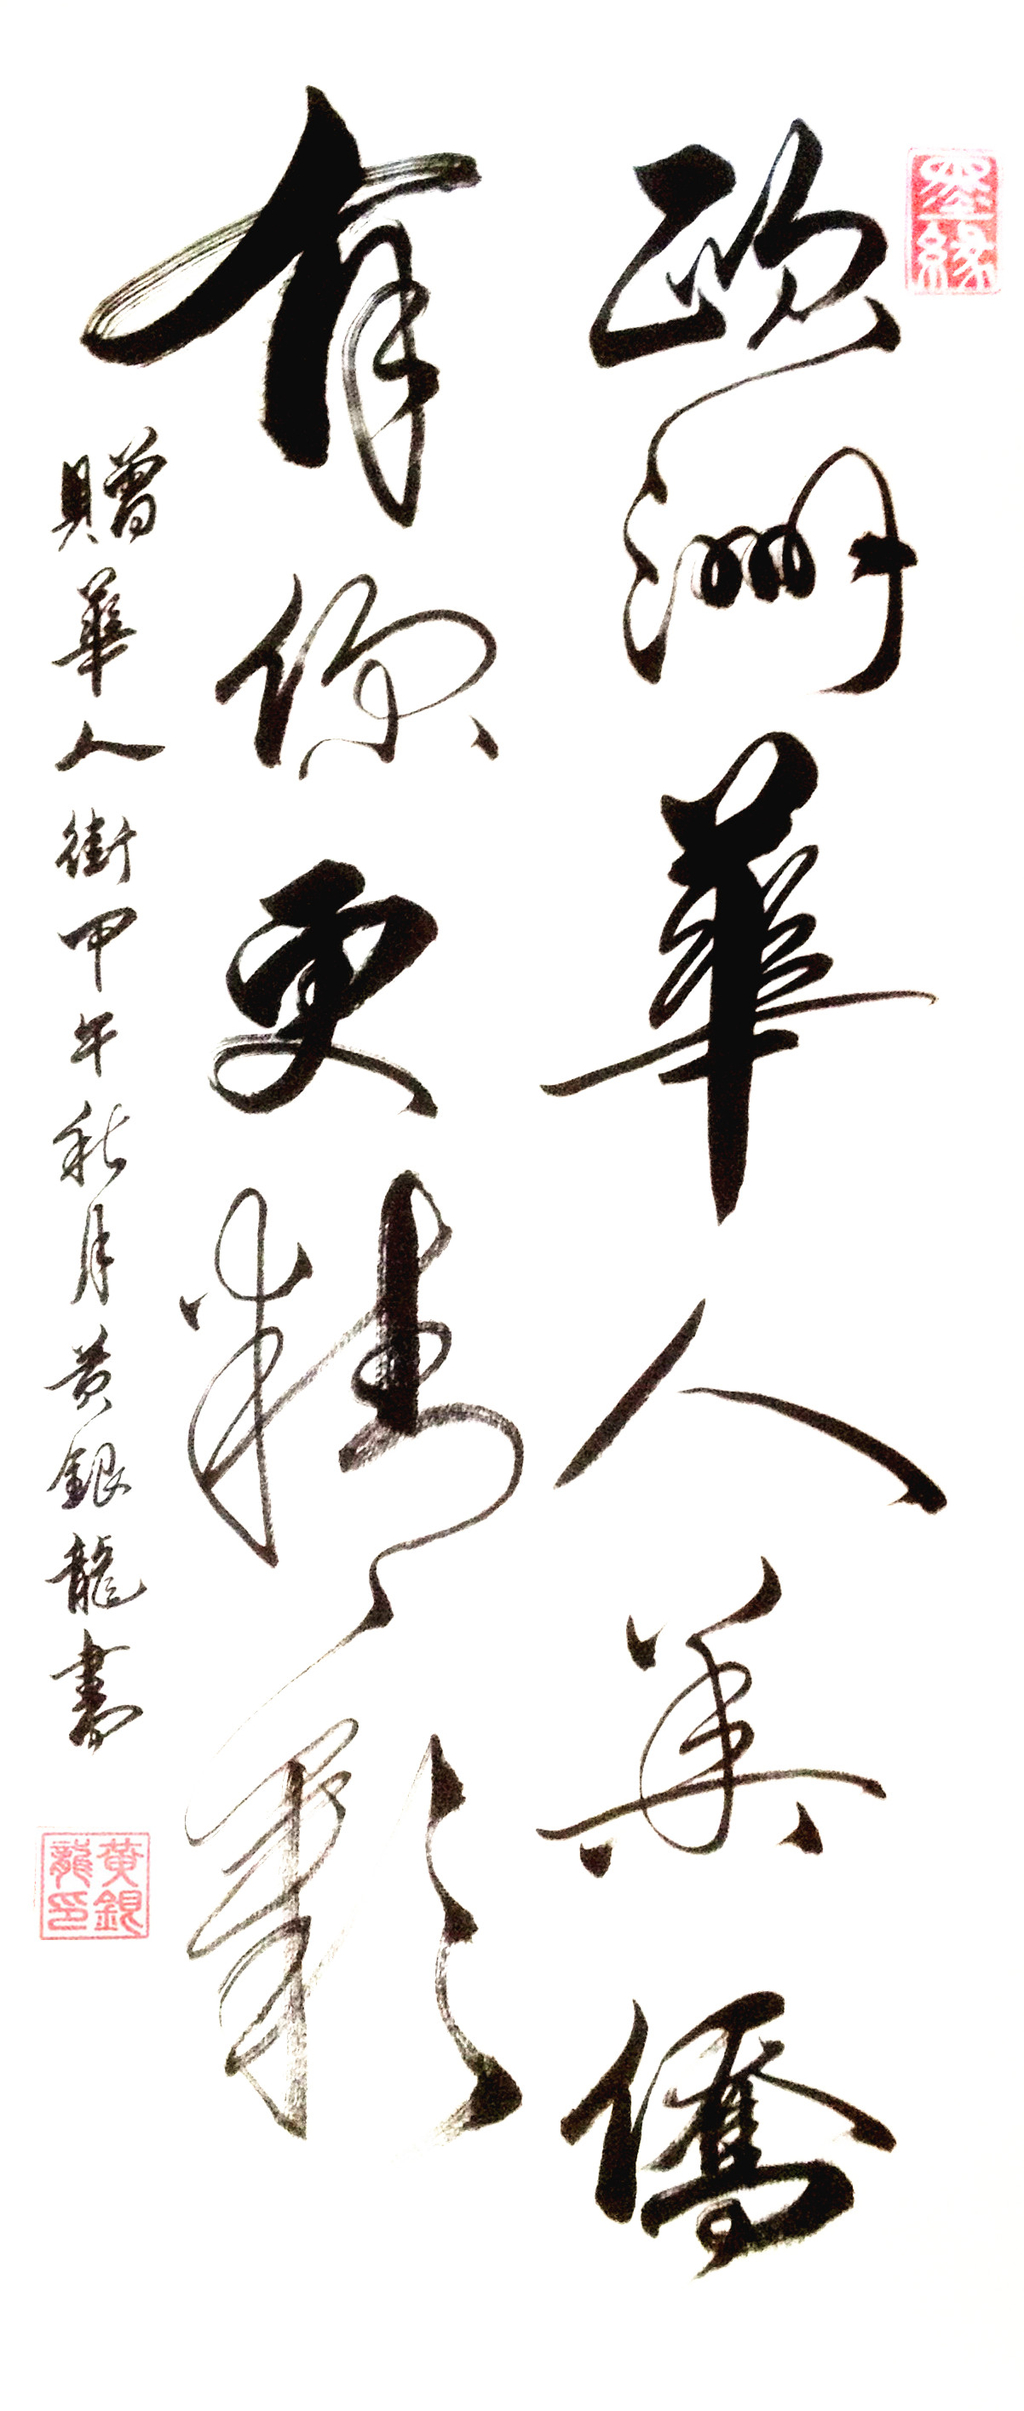 墨緣
歐洲華人華僑
有你更精彩
贈華人街甲午秋月黃銀龍書
黃銀龍印